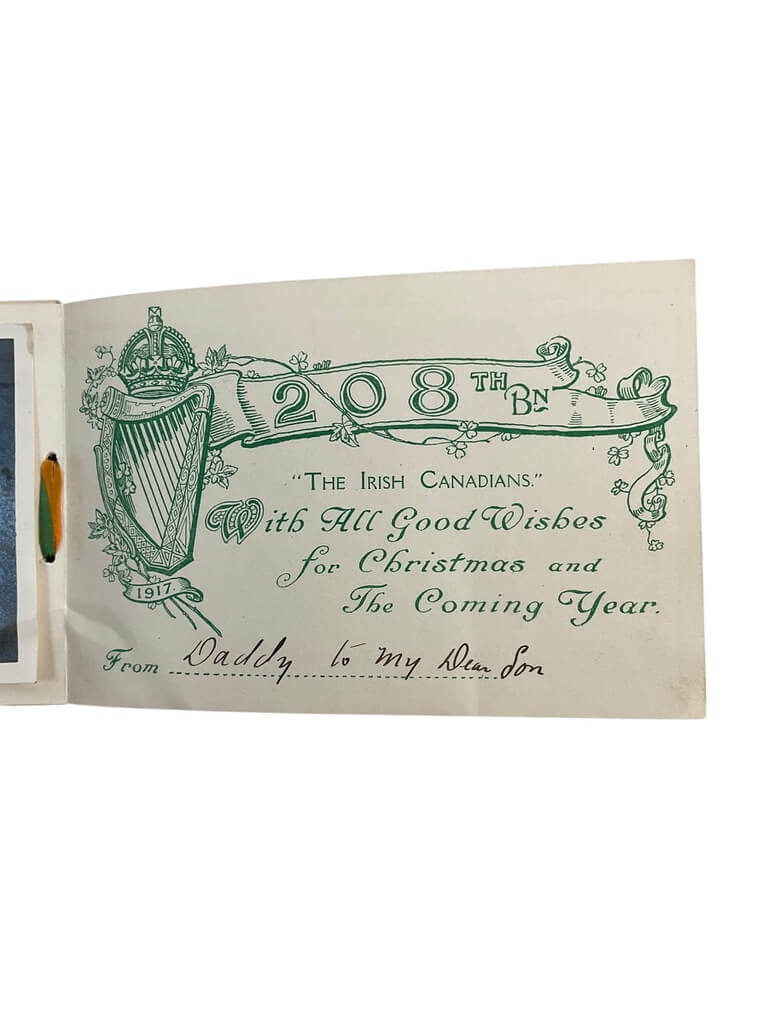 208TH BN
"THE IRISH CANADIANS."
With All Good Wishes
for Christmas and
The Coming Year.
1917.
From Daddy to My Dear Son